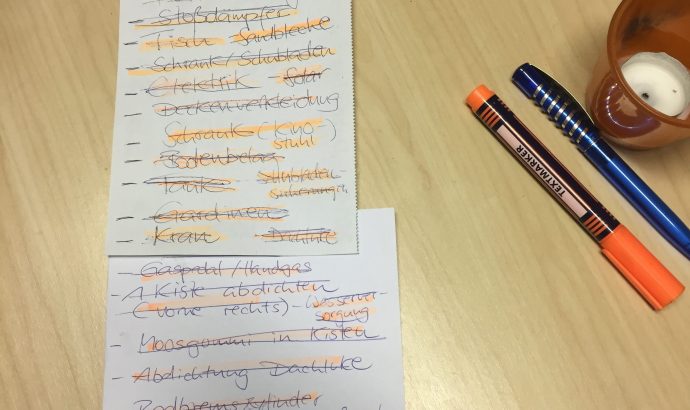 - Stoßdämpfer
- Tisch Sandbleche
- Schrank/Schubladen
- Elektrik Solar
- Deckenverkleidung
Schrank (Kino-)
stuhl
- Bodenbelag
- Tank Schubladen-
sicherungen
- Gardinen
- Kran
- Gaspedal/Handgas
- 1 Kiste abdichten
(vorne rechts) - Wasserver-
sorgung
- Moosgummi in Kisten
- Abdichtung Dachluke
Radbremszylinder
TEXTMARKER